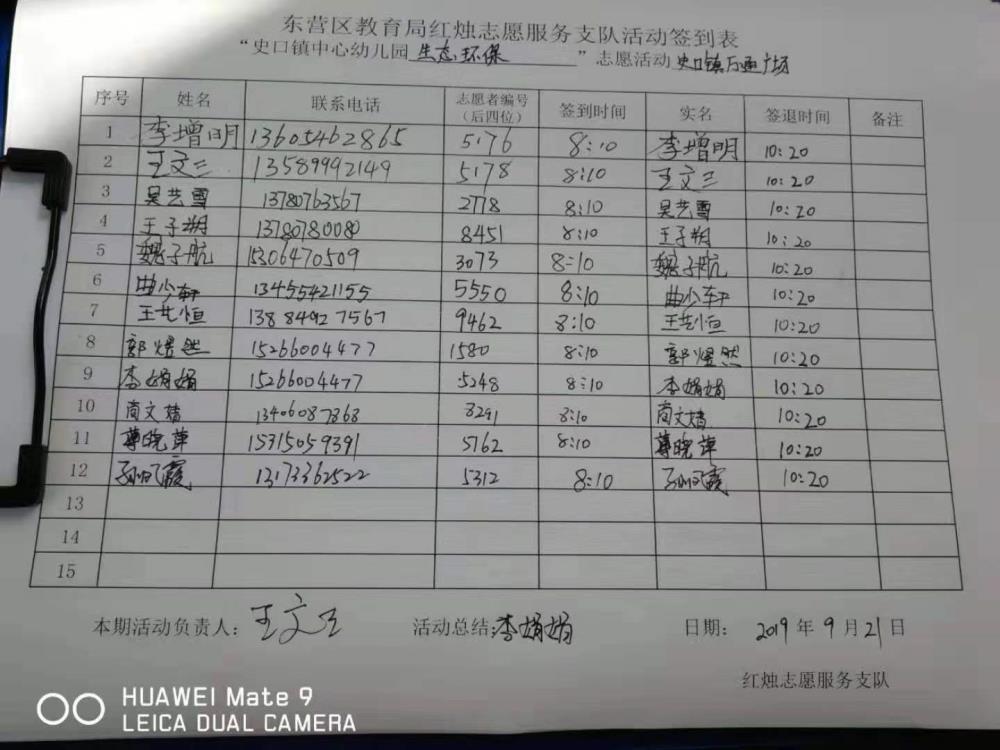 东营区教育局红烛志愿服务支队活动签到表
“史口镇中心幼儿园 生态环保 ”志愿活动 史口镇万通广场
序号 姓名 联系电话 志愿者编号（后四位） 签到时间 实名 签退时间 备注
1 李增明 13605462865 5176 8:10 李增明 10:20
2 王文三 13589992149 5178 8:10 王文三 10:20
3 吴艺雪 13780763567 2778 8:10 吴艺雪 10:20
4 王子朔 13780780080 8451 8:10 王子朔 10:20
5 魏子航 15306470509 3073 8:10 魏子航 10:20
6 曲少轩 13455421155 5550 8:10 曲少轩 10:20
7 王艺恒 13884927567 9462 8:10 王艺恒 10:20
8 郭煜然 15266004477 1580 8:10 郭煜然 10:20
9 李娟娟 15266004477 5248 8:10 李娟娟 10:20
10 商文婧 13406087868 3291 8:10 商文婧 10:20
11 晓萍 15315059391 5762 8:10 晓萍 10:20
12 孙凤霞 13173362522 5312 8:10 孙凤霞 10:20
13
14
15
本期活动负责人：王文三 活动总结：李娟娟 日期： 2019 年 9 月 21 日
红烛志愿服务支队
HUAWEI Mate 9
LEICA DUAL CAMERA